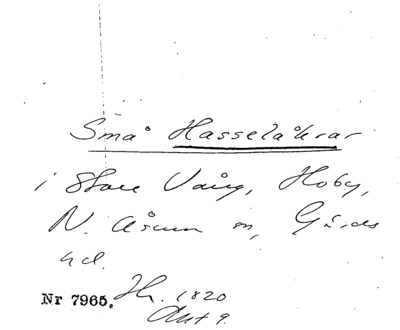 Små Hasselåkrar
i Stora Vång, Hoby,
N. Åsum sn, Gärds
hd.
Nr 7965. Hr. 1820
Akt 9.